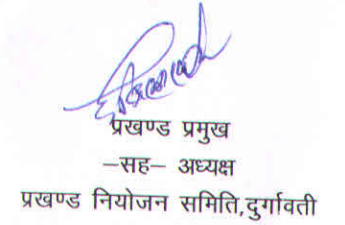 प्रखण्ड प्रमुख
–सह– अध्यक्ष
प्रखण्ड नियोजन समिति,दुर्गावती